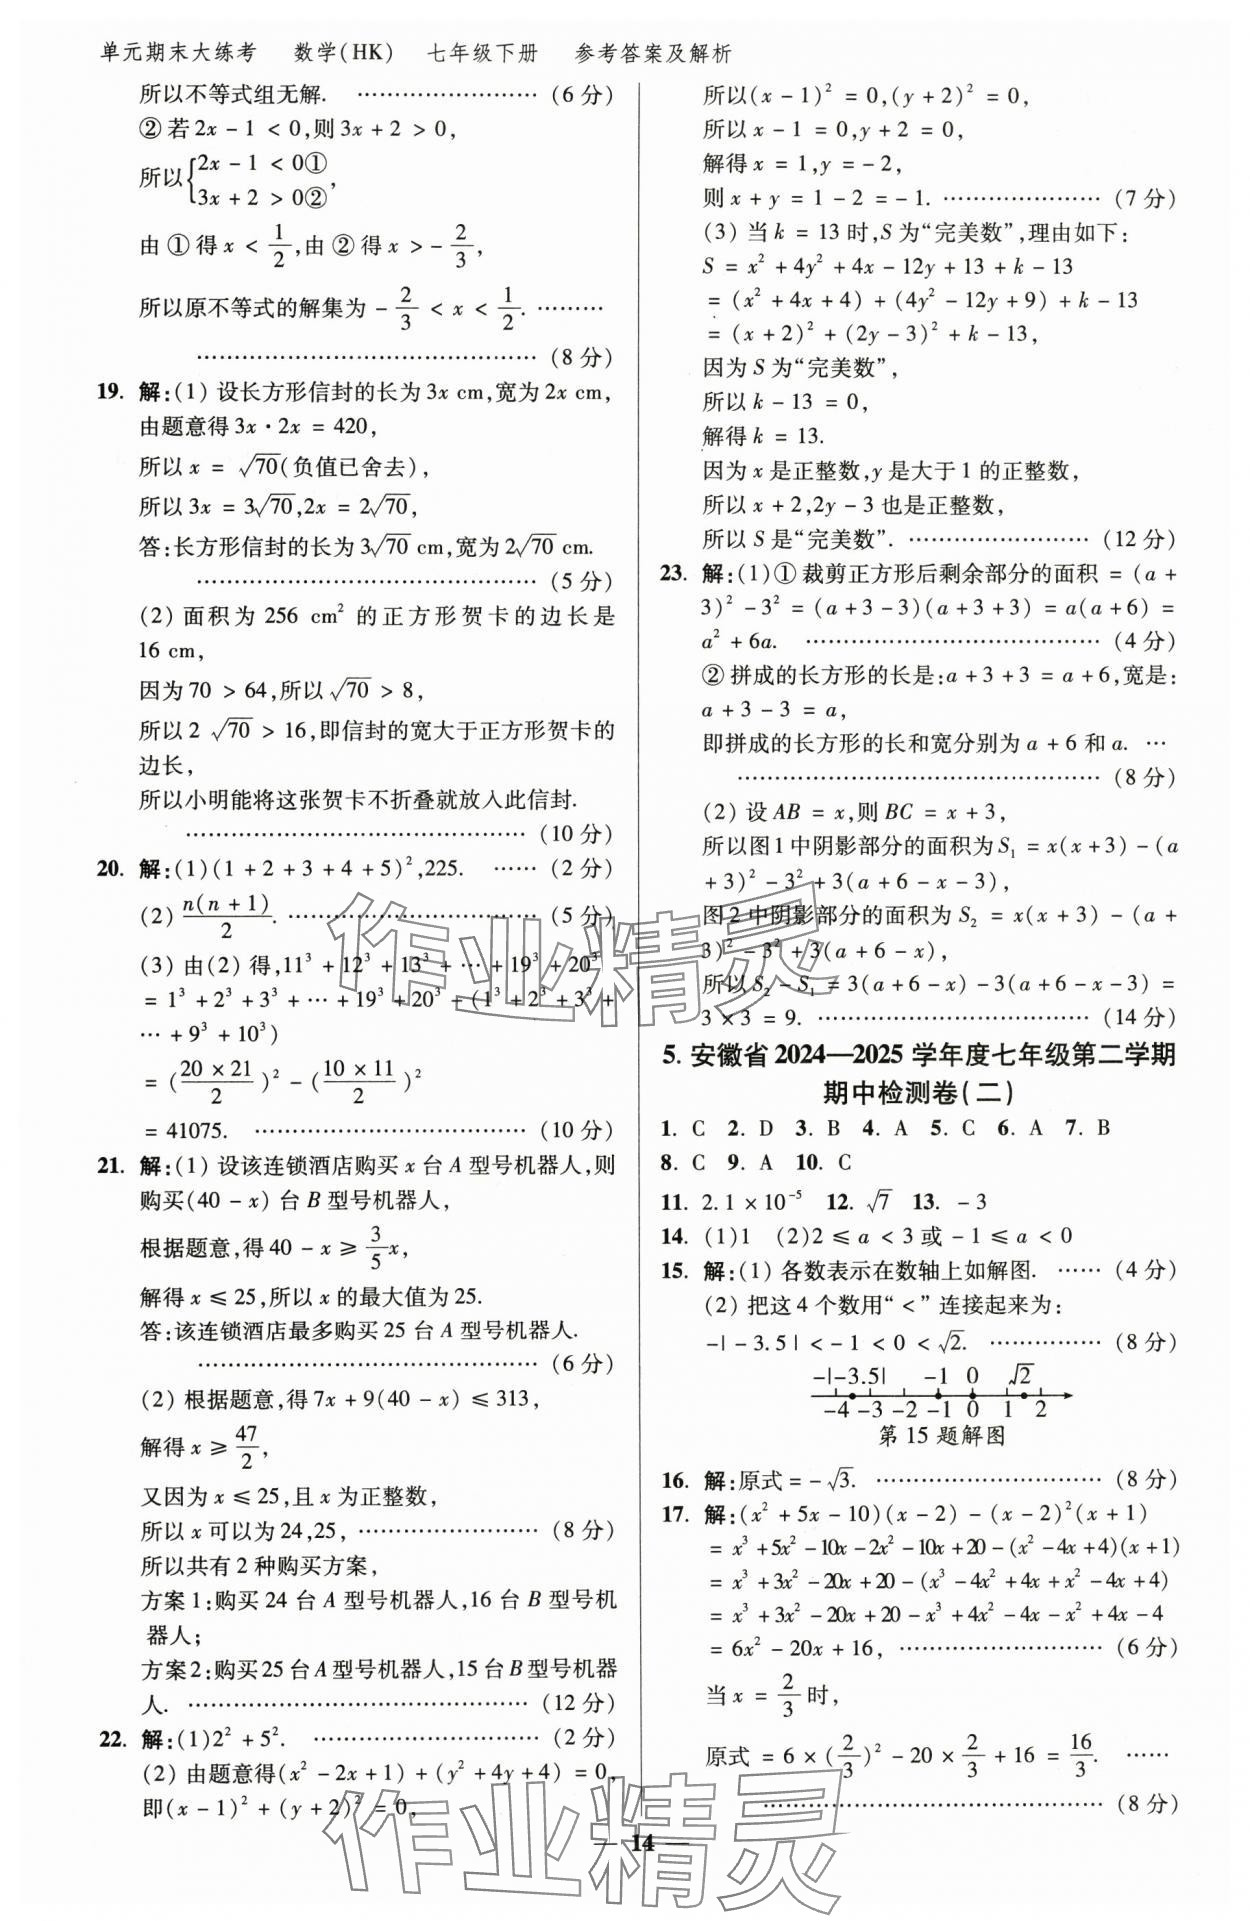 单元期末大练考 数学(HK) 七年级下册 参考答案及解析
所以不等式组无解. ……………………(6分)
②若2x-1<0,则3x+2>0,
所以{2x-1<0①
3x+2>0②,
由①得x<1/2,由②得x>-2/3,
所以原不等式的解集为-2/3<x<1/2. ………
……………………………………(8分)
19. 解:(1)设长方形信封的长为3x cm,宽为2x cm,
由题意得3x·2x=420,
所以x=√70(负值已舍去),
所以3x=3√70,2x=2√70,
答:长方形信封的长为3√70 cm,宽为2√70 cm.
……………………………………(5分)
(2)面积为256 cm²的正方形贺卡的边长是
16 cm,
因为70>64,所以√70>8,
所以2√70>16,即信封的宽大于正方形贺卡的
边长,
所以小明能将这张贺卡不折叠就放入此信封.
……………………………………(10分)
20. 解:(1)(1+2+3+4+5)²,225. ……(2分)
(2)n(n+1)/2. ……………………………(5分)
(3)由(2)得,11³+12³+13³+…+19³+20³
=1³+2³+3³+…+19³+20³-(1³+2³+3³+
…+9³+10³)
=(20×21/2)²-(10×11/2)²
=41075. ……………………………(10分)
21. 解:(1)设该连锁酒店购买x台A型号机器人,则
购买(40-x)台B型号机器人,
根据题意,得40-x≥3/5x,
解得x≤25,所以x的最大值为25.
答:该连锁酒店最多购买25台A型号机器人.
……………………………………(6分)
(2)根据题意,得7x+9(40-x)≤313,
解得x≥47/2,
又因为x≤25,且x为正整数,
所以x可以为24,25, ……………………(8分)
所以共有2种购买方案,
方案1:购买24台A型号机器人,16台B型号机
器人;
方案2:购买25台A型号机器人,15台B型号机器
人. ……………………………………(12分)
22. 解:(1)2²+5². ………………………(2分)
(2)由题意得(x²-2x+1)+(y²+4y+4)=0,
即(x-1)²+(y+2)²=0,
所以(x-1)²=0,(y+2)²=0,
所以x-1=0,y+2=0,
解得x=1,y=-2,
则x+y=1-2=-1. …………………(7分)
(3)当k=13时,S为“完美数”,理由如下:
S=x²+4y²+4x-12y+13+k-13
=(x²+4x+4)+(4y²-12y+9)+k-13
=(x+2)²+(2y-3)²+k-13,
因为S为“完美数”,
所以k-13=0,
解得k=13.
因为x是正整数,y是大于1的正整数,
所以x+2,2y-3也是正整数,
所以S是“完美数”. ……………………(12分)
23. 解:(1)①裁剪正方形后剩余部分的面积=(a+
3)²-3²=(a+3-3)(a+3+3)=a(a+6)=
a²+6a. ………………………………(4分)
②拼成的长方形的长是:a+3+3=a+6,宽是:
a+3-3=a,
即拼成的长方形的长和宽分别为a+6和a. …
………………………………………(8分)
(2)设AB=x,则BC=x+3,
所以图1中阴影部分的面积为S₁=x(x+3)-(a
+3)²-3²+3(a+6-x-3),
图2中阴影部分的面积为S₂=x(x+3)-(a+
3)²-3²+3(a+6-x),
所以S₂-S₁=3(a+6-x)-3(a+6-x-3)=
3×3=9. ……………………………(14分)
5. 安徽省2024—2025学年度七年级第二学期
期中检测卷(二)
1. C 2. D 3. B 4. A 5. C 6. A 7. B
8. C 9. A 10. C
11. 2.1×10⁻⁵ 12. √7 13. -3
14. (1)1 (2)2≤a<3或-1≤a<0
15. 解:(1)各数表示在数轴上如解图. ……(4分)
(2)把这4个数用“<”连接起来为:
-|-3.5|<-1<0<√2. ……………(8分)
-|-3.5| -1 0 √2
-4 -3 -2 -1 0 1 2
第15题解图
16. 解:原式=-√3. ………………………(8分)
17. 解:(x²+5x-10)(x-2)-(x-2)²(x+1)
=x³+5x²-10x-2x²-10x+20-(x²-4x+4)(x+1)
=x³+3x²-20x+20-(x³-4x²+4x+x²-4x+4)
=x³+3x²-20x+20-x³+4x²-4x-x²+4x-4
=6x²-20x+16, ……………………(6分)
当x=2/3时,
原式=6×(2/3)²-20×2/3+16=16/3. ……
……………………………………(8分)
— 14 —
作业精灵
作业精灵